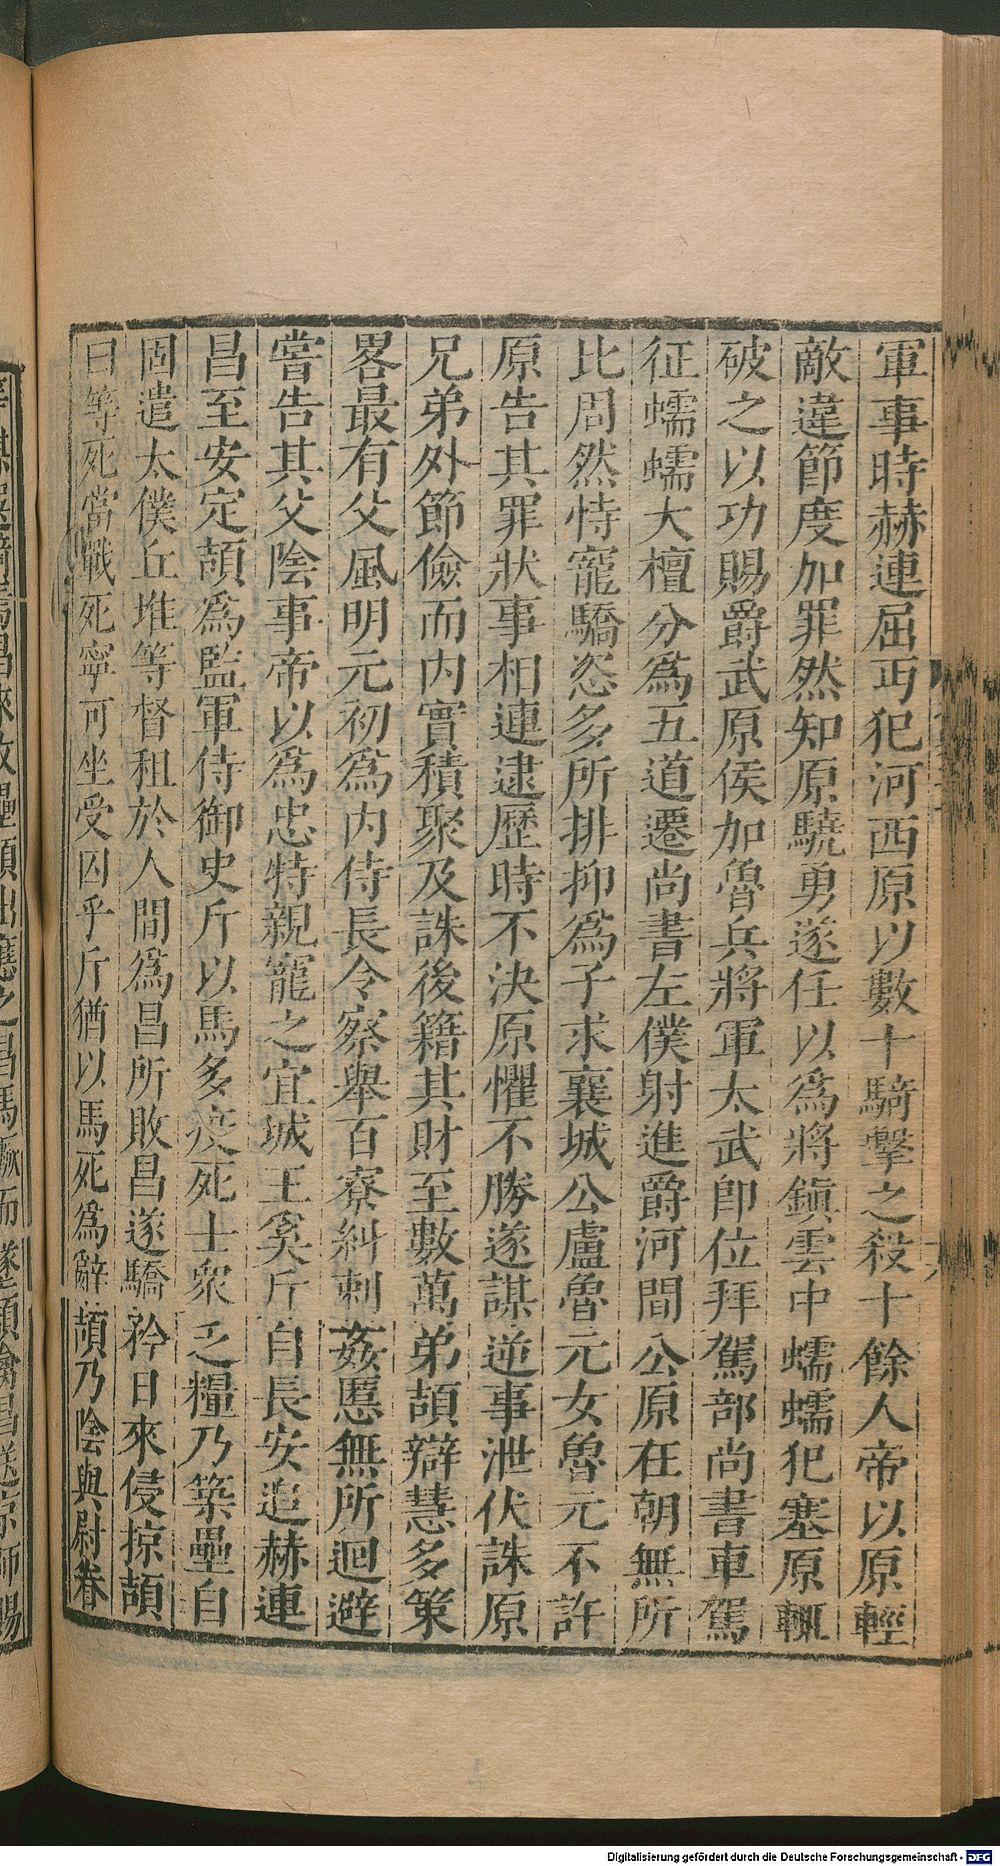 軍事時赫連屈丐犯河西原以數十騎擊之殺十餘人帝以原輕
敵違節度加罪然知原驍勇遂任以爲將鎭雲中蠕蠕犯塞原輒
破之以功賜爵武原侯加魯兵將軍太武卽位拜駕部尚書車駕
征蠕蠕大檀分爲五道遷尚書左僕射進爵河間公原在朝無所
比周然恃寵驕恣多所排抑爲子求襄城公盧魯元女魯元不許
原告其罪狀事相連逮歷時不決原懼不勝遂謀逆事泄伏誅原
兄弟外節儉而内實積聚及誅後籍其財至數萬弟頡辯慧多策
畧最有父風明元初爲内侍長令察舉百寮糾刺姦慝無所迴避
嘗告其父陰事帝以爲忠特親寵之宜城王奚斤自長安追赫連
昌至安定頡爲監軍侍御史斤以馬多疫死士衆乏糧乃築壘自
固遣太僕丘堆等督租於人間爲昌所敗昌遂驕矜日來侵掠頡
曰等死當戰死寧可坐受囚乎斤猶以馬死爲辭頡乃陰與尉眷
昌來攻壘頡出應之昌馬蹶而墜頡擒昌送京師賜
Digitalisierung gefördert durch die Deutsche Forschungsgemeinschaft - DFG